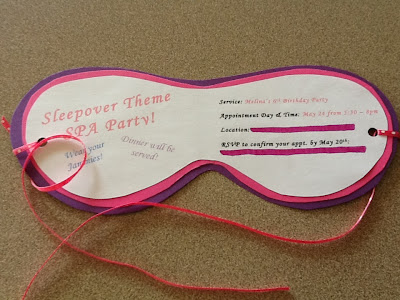 Sleepover Theme
SPA Party!
Wear your
Jammies!
Dinner will be
served!
Service: Melina's 8th Birthday Party
Appointment Day & Time: May 28 from 5:30 - 8pm
Location:
RSVP to confirm your appt. by May 20th: